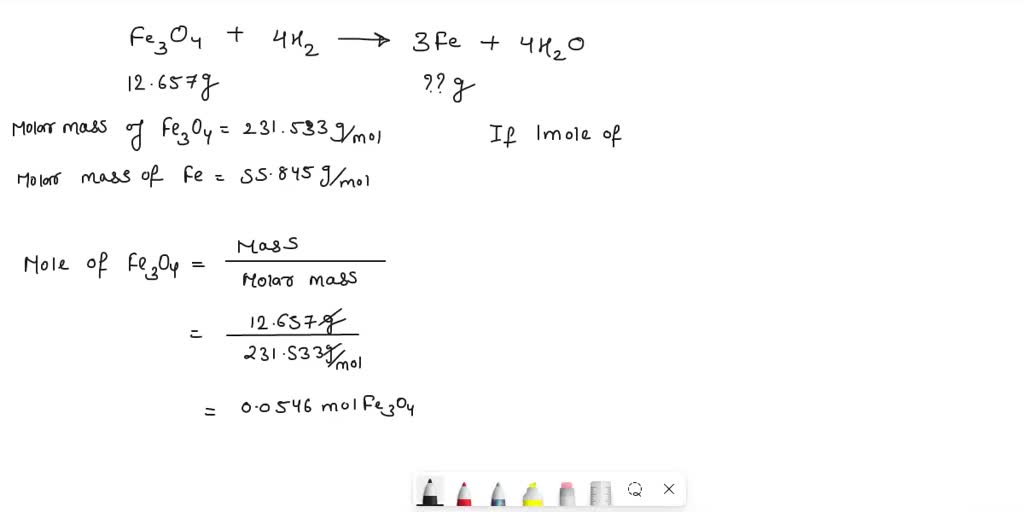 Fe₃O₄ + 4H₂ ⟶ 3Fe + 4H₂O
12.657g ?? g
Molar mass of Fe₃O₄ = 231.533 g/mol
Molar mass of Fe = 55.845 g/mol
Mole of Fe₃O₄ = Mass / Molar mass
= 12.657g / 231.533g/mol
= 0.0546 mol Fe₃O₄
If 1mole of